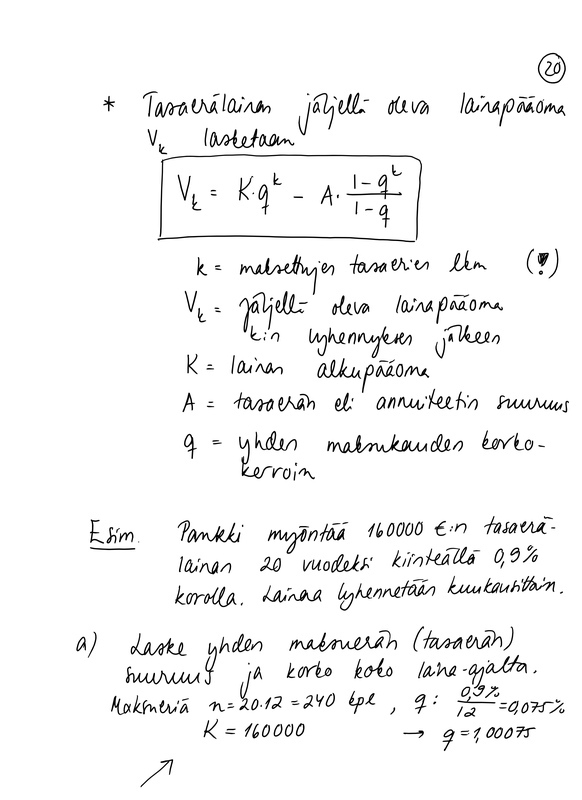 20
* Tasaerälainan jäljellä oleva lainapääoma
V_k lasketaan
V_k = K·q^k − A· (1−q^k)/(1−q)
k = maksettujen tasaerien lkm (!)
V_k = jäljellä oleva lainapääoma
k:n lyhennyksen jälkeen
K = lainan alkupääoma
A = tasaerän eli annuiteetin suuruus
q = yhden maksukauden korko-
kerroin
Esim. Pankki myöntää 160000 €:n tasaerä-
lainan 20 vuodeksi kiinteällä 0,9%
korolla. Lainaa lyhennetään kuukausittain.
a) Laske yhden maksuerän (tasaerän)
suuruus ja korko koko laina-ajalta.
Maksueriä n=20·12=240 kpl , q: 0,9%/12 =0,075%
K = 160000 → q=1,00075